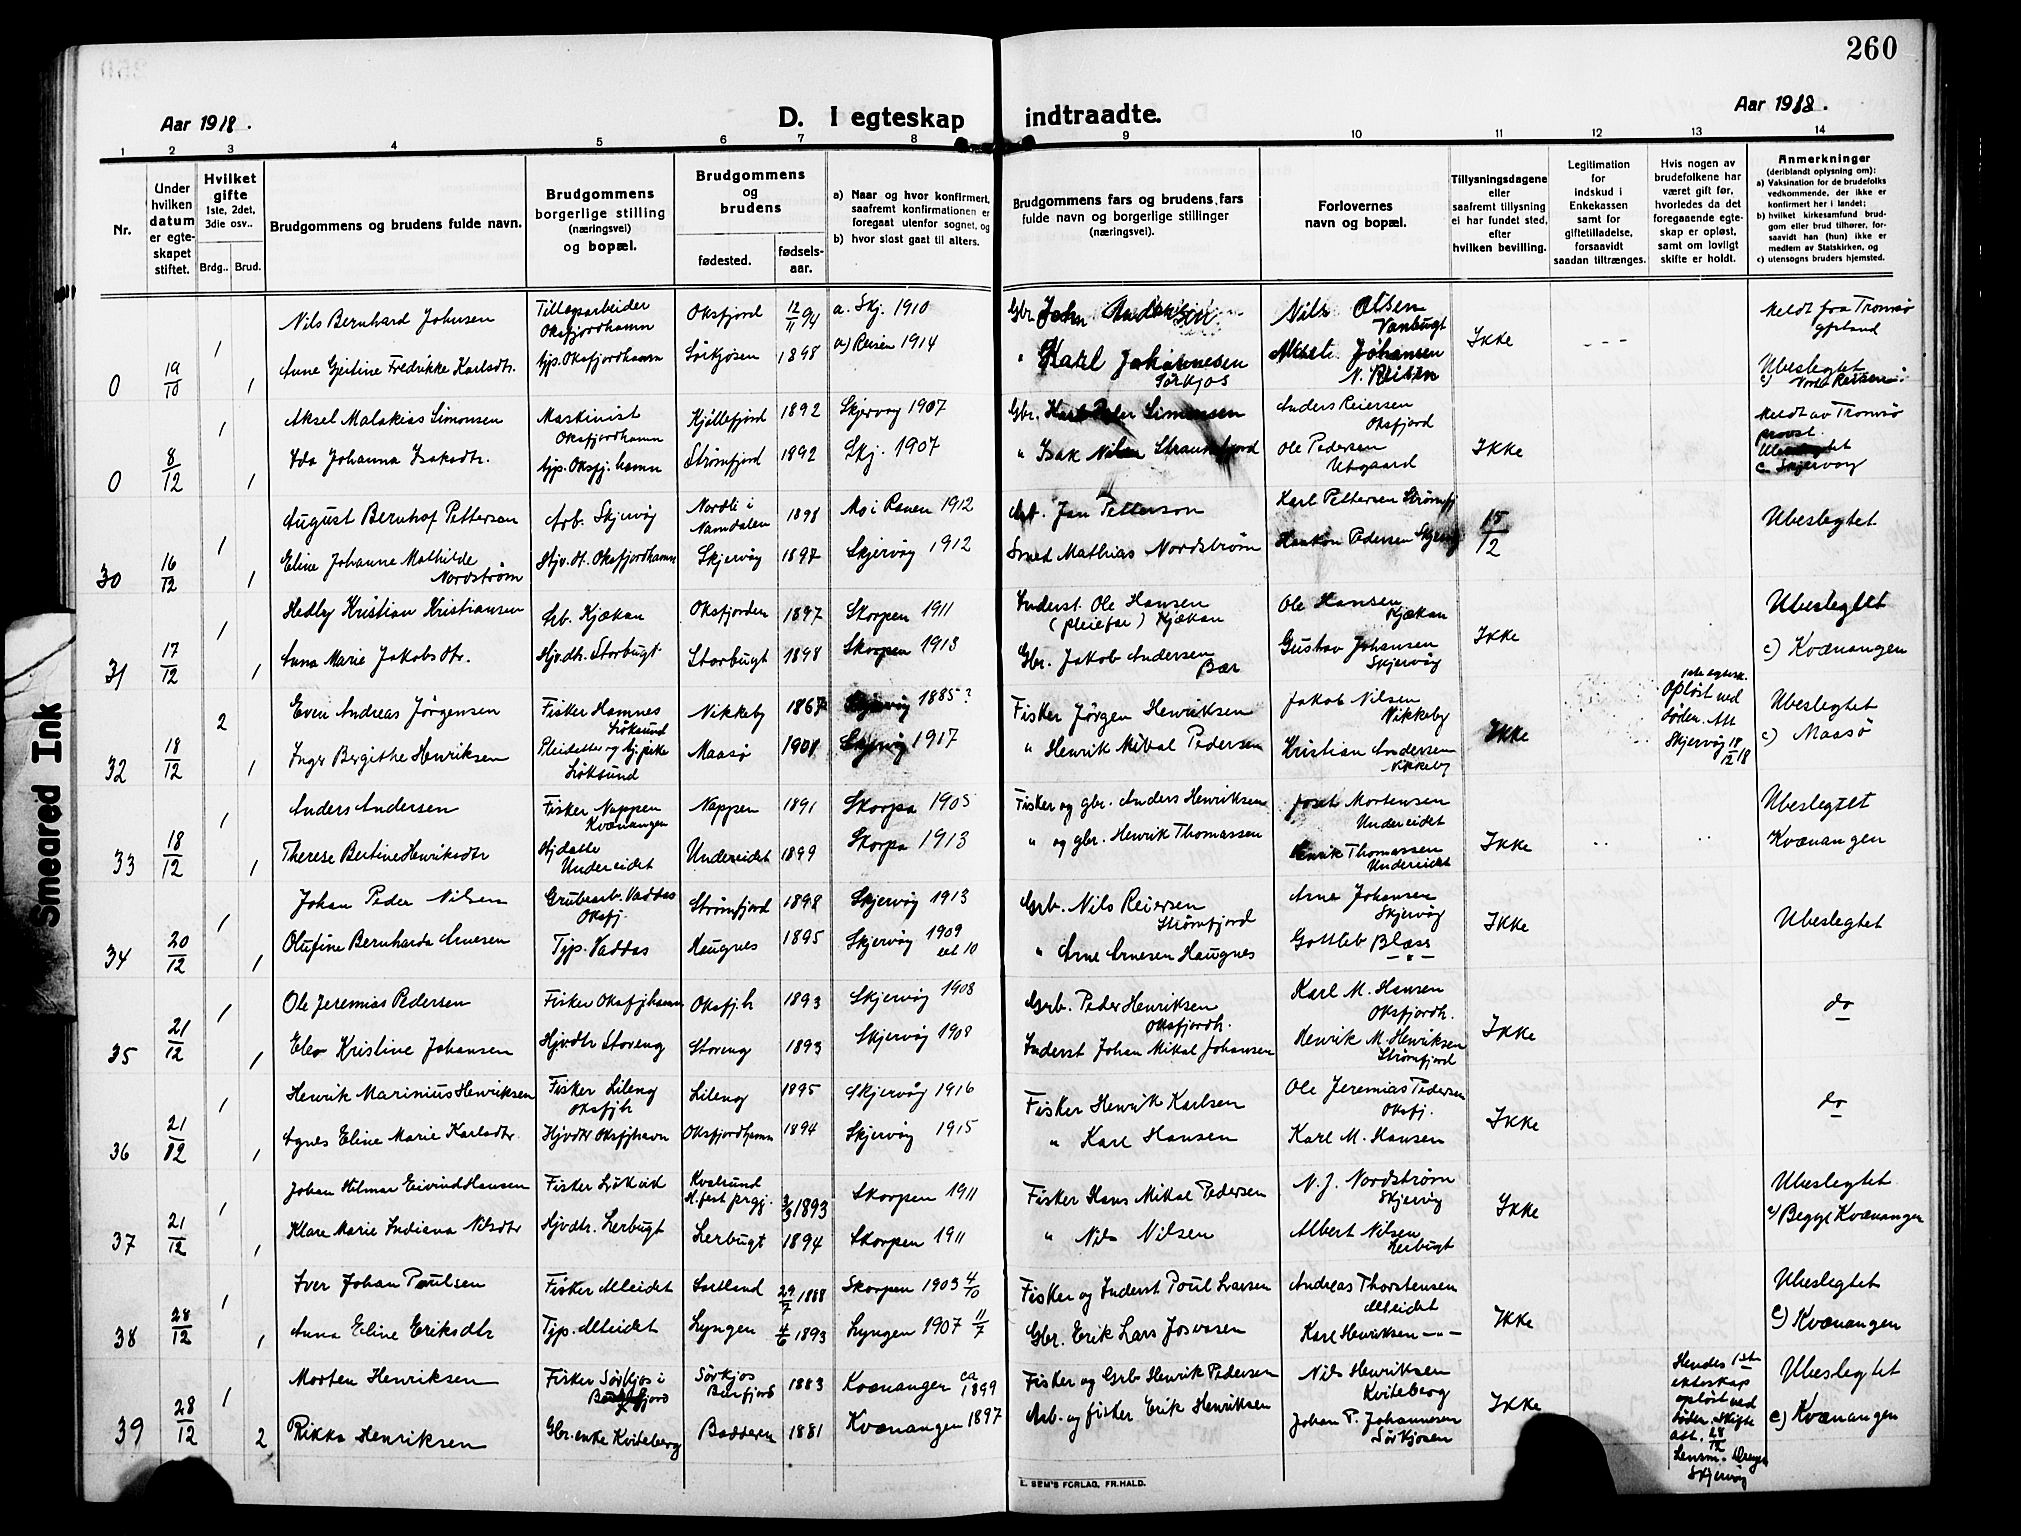 260
Aar 1918.
D. I egteskap indtraadte.
Aar 1918.
1 2 3 4 5 6 7 8 9 10 11 12 13 14
Nr.
Under hvilken datum er egteskapet stiftet.
Hvilket gifte 1ste, 2det, 3die osv..
Brdg.. Brud.
Brudgommens og brudens fulde navn.
Brudgommens borgerlige stilling (næringsvei) og bopæl.
Brudgommens og brudens
fødested.
fødsels-aar.
a) Naar og hvor konfirmert, saafremt konfirmationen er foregaat utenfor sognet, og
b) hvor sidst gaat til alters.
Brudgommens fars og brudens fars fulde navn og borgerlige stillinger (næringsvei).
Forlovernes navn og bopæl.
Tillysningsdagene eller saafremt tillysning ei har fundet sted, efter hvilken bevilling.
Legitimation for indskud i Enkekassen samt for giftetilladelse, forsaavidt saadan tiltrænges.
Hvis nogen av brudefolkene har været gift før, hvorledes da det foregaaende egteskap er opløst, samt om lovligt skifte er holdt.
Anmerkninger (deriblandt oplysning om):
a) Vaksination for de brudefolks vedkommende, der ikke er konfirmert her i landet;
b) hvilket kirkesamfund brudgom eller brud tilhører, forsaavidt han (hun) ikke er medlem av Statskirken, og
c) utensogns bruders hjemsted.
Nils Bernhard Johnsen Oksfjordhamn Oksfjord 12/11 94 a. Skj. 1910 Gbr. John Nils Olsen Vanbugt Ikke Meldt fra Tromsø
0 19/10 1 1 Anne Gjertine Fredrikke Karlsdtr. tjp. Oksfjordhamn Sørkjosen 1898 a) Reisen 1914 " Karl Johannesen Sørkjos Johansen N. Reisen Ubeslegtet
Aksel Malakias Simonsen Maskinist Oksfjordhamn Kjøllefjord 1892 Skjervøy 1907 Gbr. Simonsen Anders Reiersen Oksfjord Ikke Meldt av Tromsø provst.
0 8/12 1 1 Ida Johanna Isaksdtr. tjp. Oksfj. hamn Strømfjord 1892 Skj. 1907 " Isak Nilsen Ole Pedersen Utgaard c. Skjervøy
August Bernhof Pettersen Arb. Skjervøy Nordli i Namdalen 1898 Mo i Ranen 1912 Arb. Jan Petterson Karl Pettersen Strømfj 15/12 Ubeslegtet
30 16/12 1 1 Eline Johanne Mathilde Nordstrøm Hjv. dt. Oksfjordhamn Skjervøy 1897 Skjervøy 1912 Smed Mathias Nordstrøm Haakon Pedersen Skjervøy
Hedley Kristian Kristiansen Arb. Kjækan Oksfjorden 1897 Skorpen 1911 Inderst. Ole Hansen (pleiefar) Kjækan Ole Hansen Kjækan Ikke Ubeslegtet
31 17/12 1 1 Anna Marie Jakobsdtr. Hjvdtr. Storbugt Storbugt 1898 Skorpen 1913 Gbr. Jakob Andersen Bær Gustav Johansen Skjervøy c) Kvænangen
Even Andreas Jørgensen Fisker Hamnes Løksund Nikkeby 1867 Skjervøy 1885? Fisker Jørgen Henriksen Jakob Nilsen Nikkeby Ikke Opløst ved døden. Att Skjervøy 18/12 18 Ubeslegtet
32 18/12 2 1 Inger Bergithe Henriksen Pleidatter og tj. pike Løksund Maasø 1901 Skjervøy 1917 " Henrik Mikal Pedersen Kristian Andersen Nikkeby c) Maasø
Anders Andersen Fisker Nappen Kvænangen Nappen 1891 Skorpa 1905 Fisker og gbr. Anders Henriksen Joset Mortensen Undereidet Ikke Ubeslegtet
33 18/12 1 1 Therese Bertine Henriksdtr Hjdatte Undereidet Undereidet 1899 Skorpa 1913 " og gbr. Henrik Thomassen Henrik Thomassen Undereidet Kvænangen
Johan Peder Nilsen Grubearb. Vaddas Oksfj. Strømfjord 1898 Skjervøy 1913 Grb. Nils Reiersen Strømfjord Arne Johansen Skjervøy Ikke Ubeslegtet
34 20/12 1 1 Olufine Bernharda Arnesen Tjp. Vaddas Haugnes 1895 Skjervøy 1909 el 10 " Arne Arnesen Haugnes Gottleb Blæss — " —
Ole Jeremias Pedersen Fisker Oksfjhamn Oksfj.h 1893 Skjervøy 1908 Grb. Peder Henriksen Oksfjordh. Karl M. Hansen Oksfjordh. Ikke do
35 21/12 1 1 Elev Kristine Johansen Hjvdtr Storeng Storeng 1893 Skjervøy 1908 Inderst Johan Mikal Johansen Henrik M. Henriksen Strømfjord
Henrik Marinius Henriksen Fisker Lileng Oksfjh Lileng 1895 Skjervøy 1916 Fisker Henrik Karlsen Ole Jeremias Pedersen Oksfj. Ikke do
36 21/12 1 1 Agnes Eline Marie Karlsdtr. Hjvdtr Oksfjhavn Oksfjordhamn 1894 Skjervøy 1915 " Karl Hansen Karl M. Hansen
Johan Hilmar Eivind Hansen Fisker Kvalsund H.fest prgj. 3/3 1893 Skorpen 1911 Fisker Hans Mikal Pedersen N. J. Nordstrøm Skjervøy Ikke Ubeslegtet
37 21/12 1 1 Klare Marie Indiana Nilsdtr Hjvdtr. Lerbugt Lerbugt 1894 Skorpen 1911 " Nils Nilsen Albert Nilsen Lerbugt c) Begge Kvænangen
Iver Johan Poulsen Fisker Alteidet Sætland 29/7 1888 Skorpen 1903 4/10 Fisker og Inderst Poul Iversen Andreas Thorstensen Alteidet Ikke Ubeslegtet
38 28/12 1 1 Anna Eline Eriksdtr Tjp. Alteidet Lyngen 4/6 1893 Lyngen 1907 11/7 Gbr. Erik Lars Josvasen Karl Henriksen — " — c) Kvænangen
Morten Henriksen Fisker Sørkjos i Sørkjos Burfjord 1883 Kvænangen ca 1899 Fisker og Grb Henrik Pedersen Nils Henriksen Kviteberg Ikke Hendes 1ste ekteskap opløst ved døden. Skifte att. 28/12 Lensm. Skjervøy Ubeslegtet
39 28/12 1 2 Rikka Henriksen Gbr. enke Kviteberg Badderen 1881 Kvænangen 1897 Arb. og fisker Erik Henriksen Johan P. Johannesen Sørkjosen c) Kvænangen
E. SEM'S FORLAG, FR.HALD.
Smeared Ink